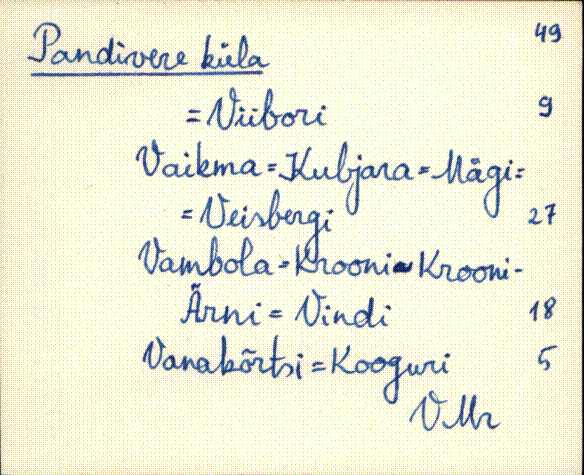 49
Pandivere küla
= Viibori 9
Vaikma = Kubjara = Mägi =
= Veisbergi 27
Vambola = Krooni ~ Krooni-
Ärni = Vindi 18
Vanakõrtsi = Kooguri 5
V Mr